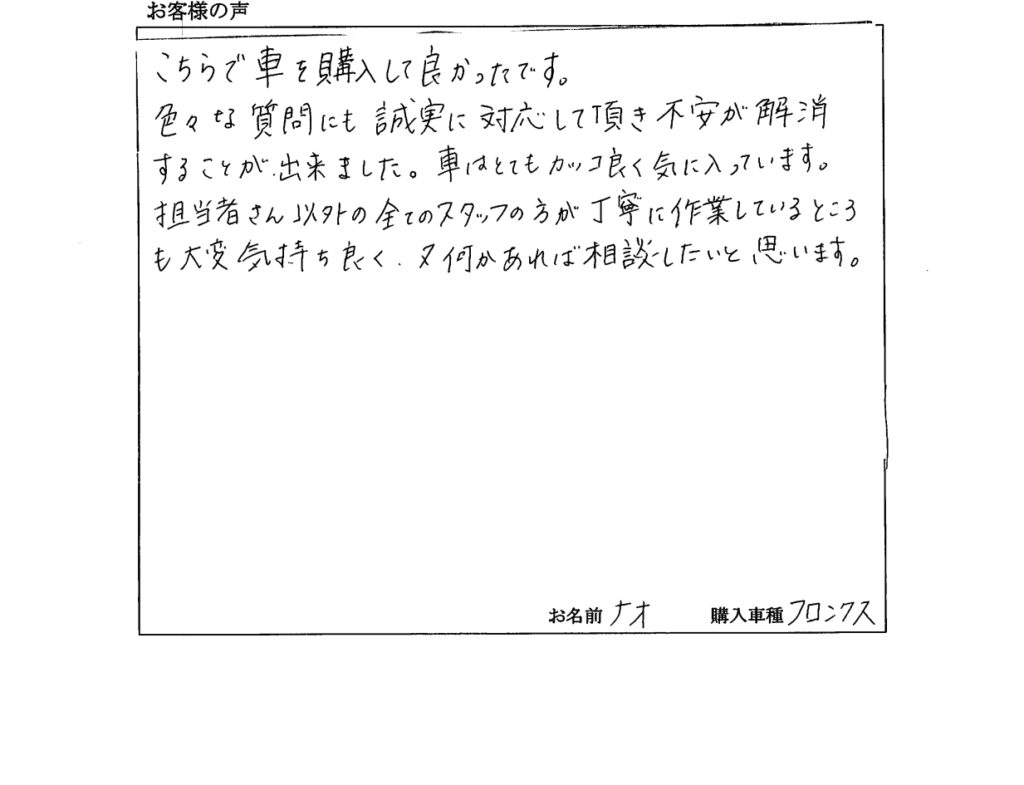 お客様の声
こちらで車を購入して良かったです。
色々な質問にも誠実に対応して頂き不安が解消
することが出来ました。車はとてもカッコ良く気に入っています。
担当者さん以外の全てのスタッフの方が丁寧に作業しているところ
も大変気持ち良く、又何かあれば相談したいと思います。
お名前 ナオ 購入車種 フロンクス